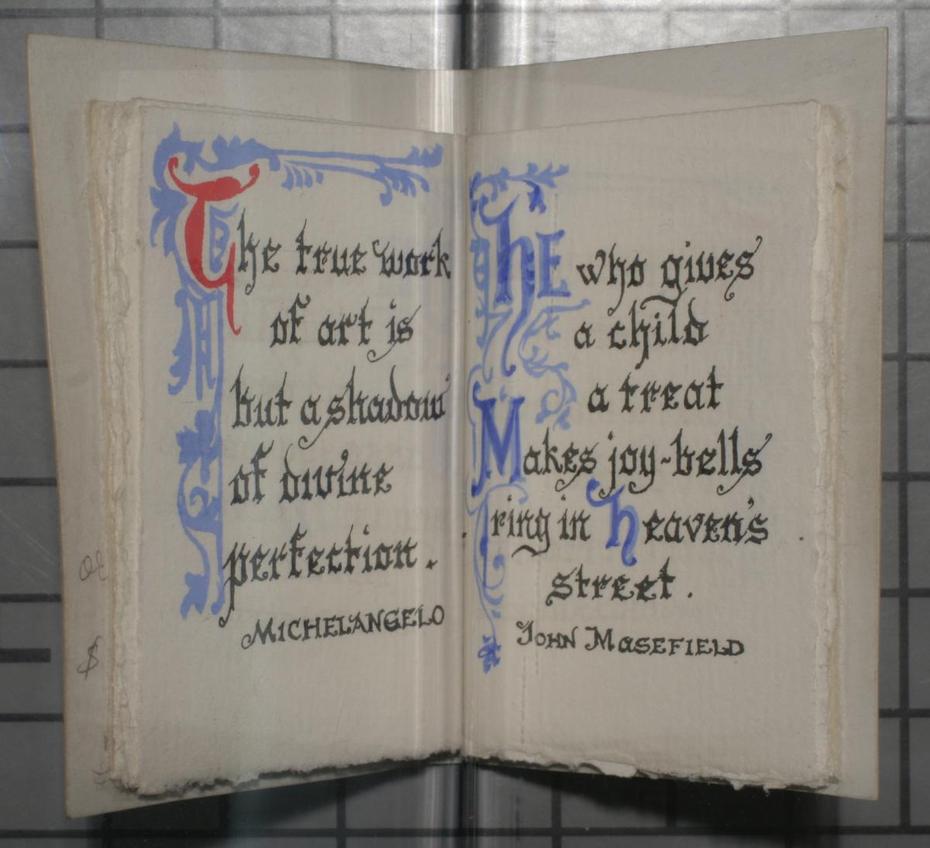 The true work
of art is
but a shadow
of divine
perfection.
MICHELANGELO
hE who gives
a child
a treat
Makes joy-bells
ring in heaven's
street.
JOHN MASEFIELD
$